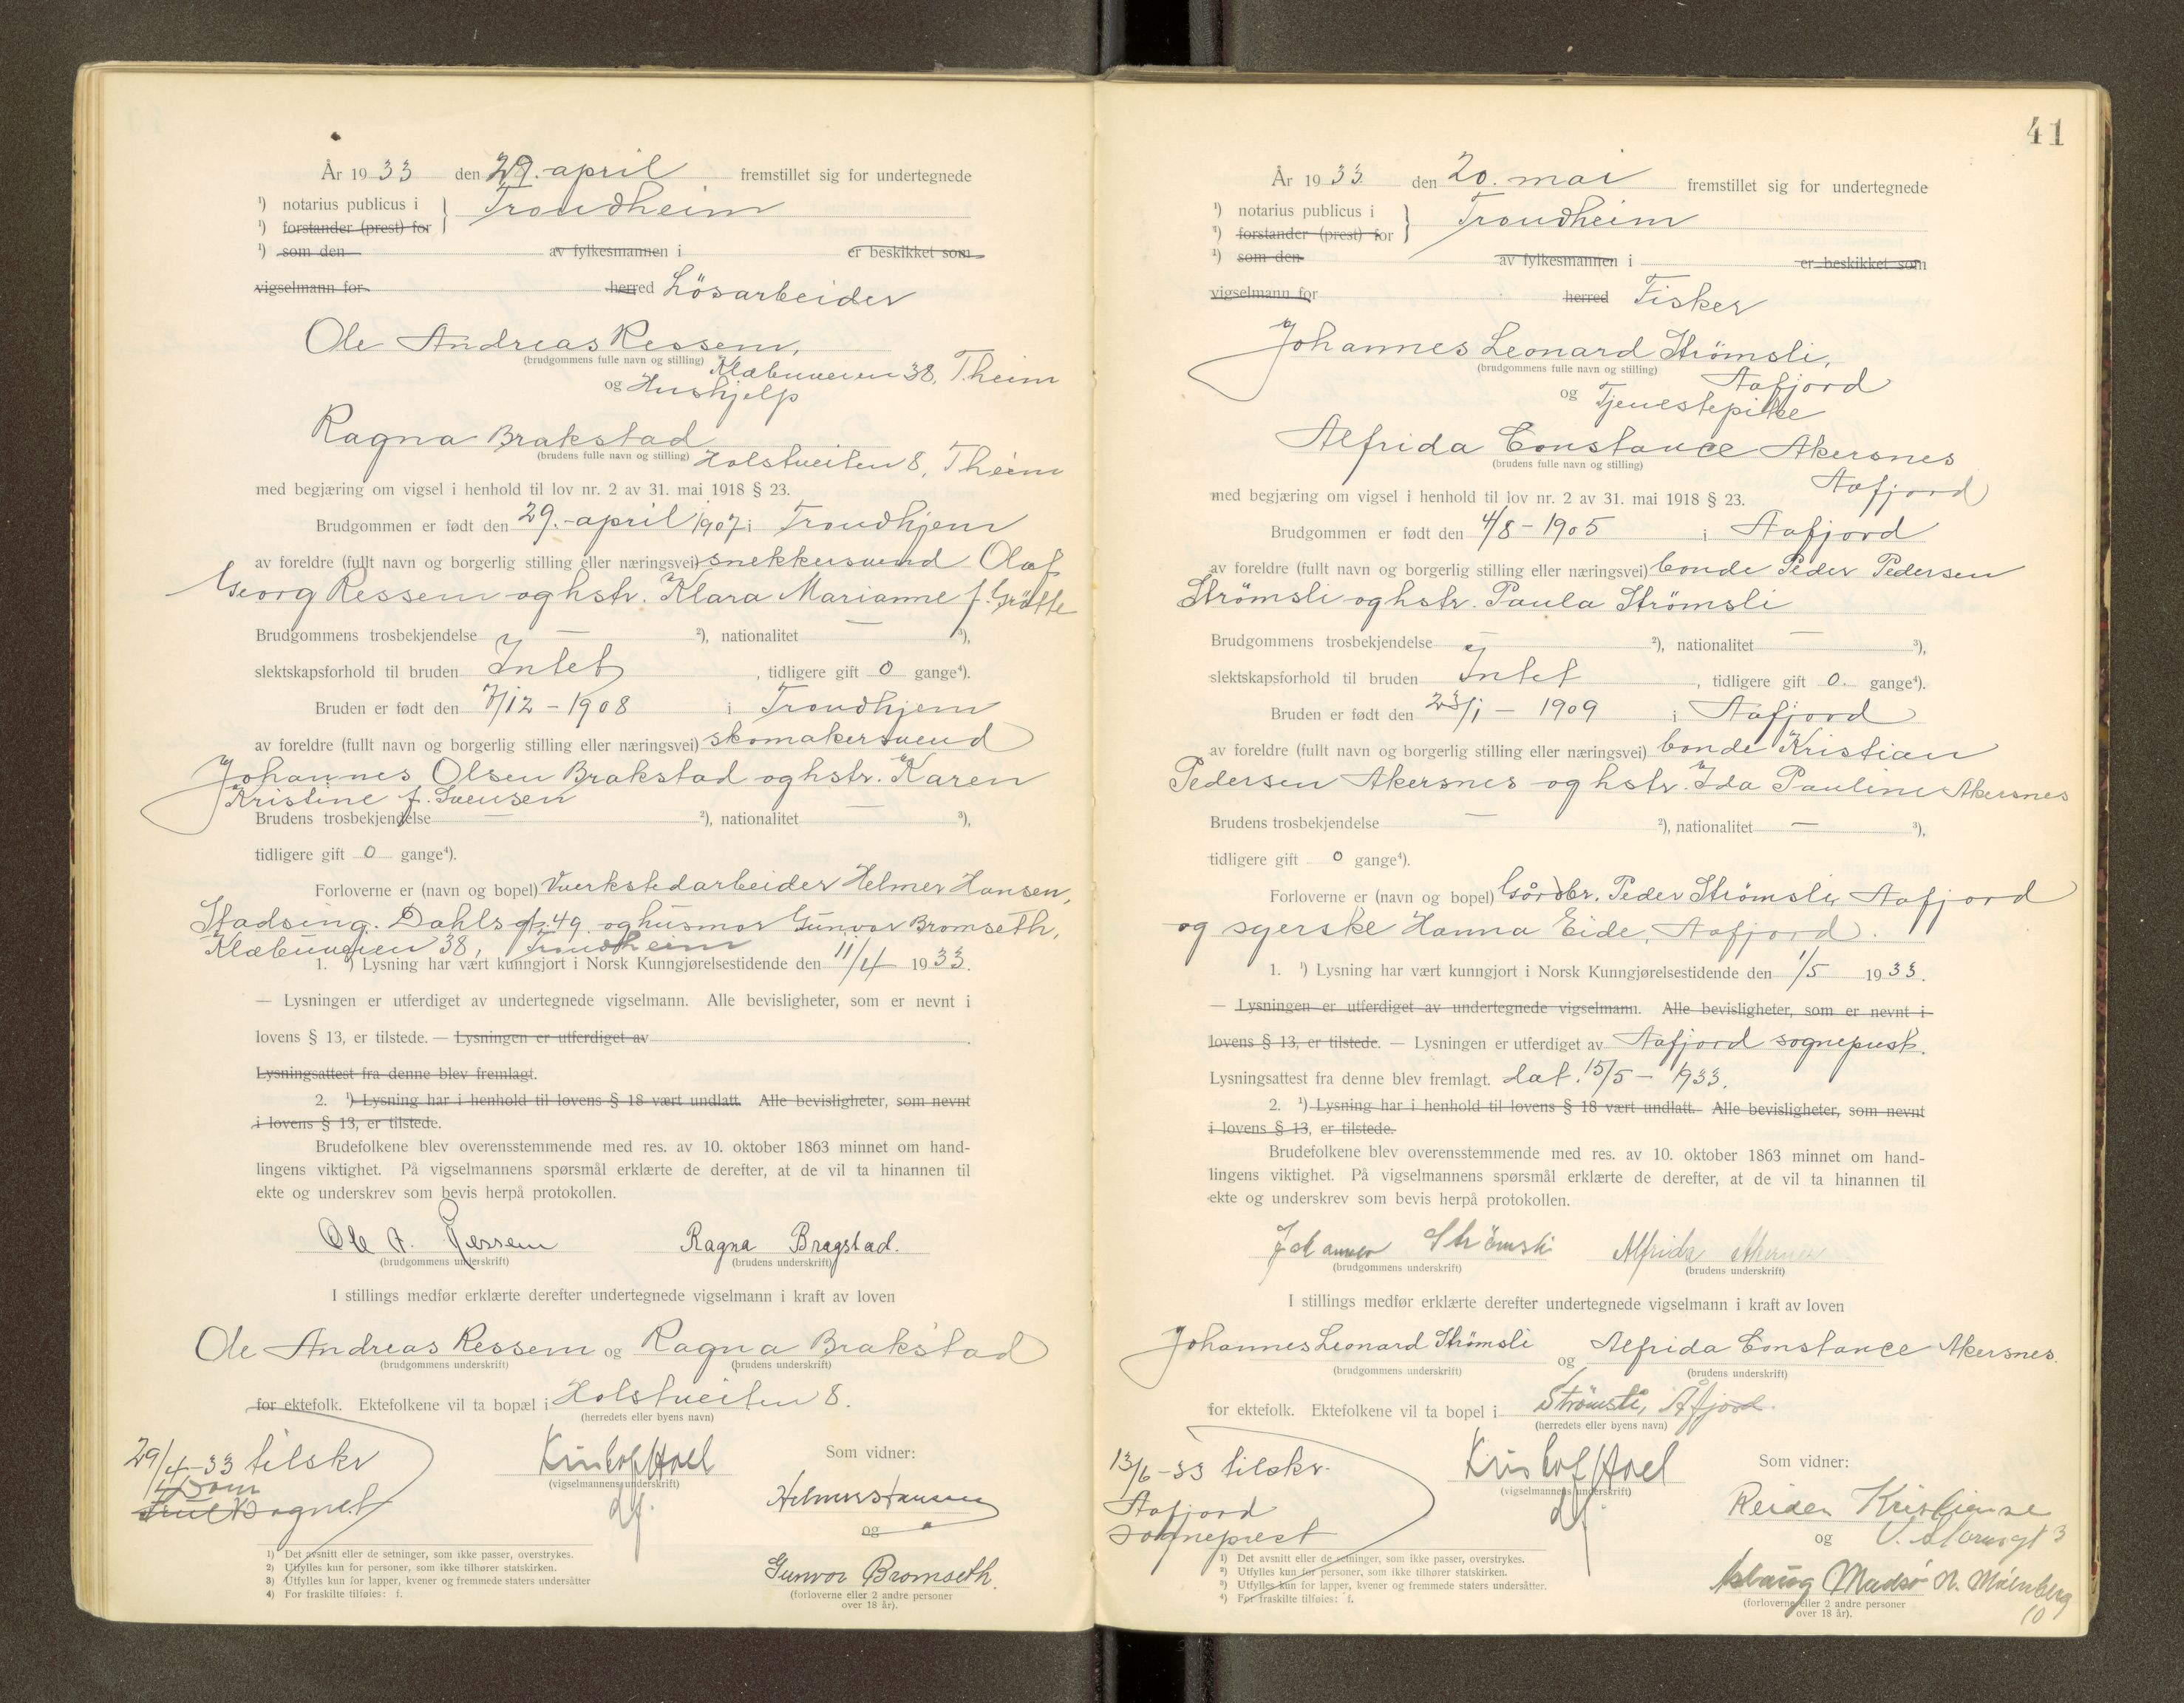 År 1933 den 29. april fremstillet sig for undertegnede
¹) notarius publicus i } Trondheim
¹) forstander (prest) for
¹) som den av fylkesmannen i er beskikket som
vigselmann for herred Lösarbeider
Ole Andreas Ressem,
(brudgommens fulle navn og stilling) Klæbuveien 38, T.heim
og Hushjelp
Ragna Brakstad
(brudens fulle navn og stilling) Holstveiten 8, T.heim
med begjæring om vigsel i henhold til lov nr. 2 av 31. mai 1918 § 23.
Brudgommen er født den 29. april 1907 i Trondhjem
av foreldre (fullt navn og borgerlig stilling eller næringsvei) snekkersvend Olaf
Georg Ressem og hstr. Klara Marianne f. Grötte
Brudgommens trosbekjendelse — ²), nationalitet — ³),
slektskapsforhold til bruden Intet , tidligere gift 0 gange⁴).
Bruden er født den 7/12 – 1908 i Trondhjem
av foreldre (fullt navn og borgerlig stilling eller næringsvei) skomakersvend
Johannes Olsen Brakstad og hstr. Karen
Kristine f. Svensen
Brudens trosbekjendelse — ²), nationalitet — ³),
tidligere gift 0 gange⁴).
Forloverne er (navn og bopel) Verkstedarbeider Helmer Hansen,
Stadsing. Dahls gt. 49 og husmor Gunvor Bromseth,
Klæbuveien 38, Trondheim
1. ¹) Lysning har vært kunngjort i Norsk Kunngjørelsestidende den 11/4 1933.
— Lysningen er utferdiget av undertegnede vigselmann. Alle bevisligheter, som er nevnt i
lovens § 13, er tilstede. — Lysningen er utferdiget av .
Lysningsattest fra denne blev fremlagt.
2. ¹) Lysning har i henhold til lovens § 18 vært undlatt. Alle bevisligheter, som nevnt
i lovens § 13, er tilstede.
Brudefolkene blev overensstemmende med res. av 10. oktober 1863 minnet om hand-
lingens viktighet. På vigselmannens spørsmål erklærte de derefter, at de vil ta hinannen til
ekte og underskrev som bevis herpå protokollen.
Ole A. Ressem Ragna Bragstad.
(brudgommens underskrift) (brudens underskrift)
I stillings medfør erklærte derefter undertegnede vigselmann i kraft av loven
Ole Andreas Ressem og Ragna Brakstad
(brudgommens underskrift) (brudens underskrift)
for ektefolk. Ektefolkene vil ta bopæl i Holstveiten 8.
(herredets eller byens navn)
29/4-33 tilskr Kristof Hoel Som vidner:
(vigselmannens underskrift)
Dom Helmer Hansen
sognet df. og
Gunvor Bromseth.
(forloverne eller 2 andre personer
over 18 år).
1) Det avsnitt eller de setninger, som ikke passer, overstrykes.
2) Utfylles kun for personer, som ikke tilhører statskirken.
3) Utfylles kun for lapper, kvener og fremmede staters undersåtter
4) For fraskilte tilføies: f.
41
År 1933. den 20. mai fremstillet sig for undertegnede
¹) notarius publicus i } Trondheim
¹) forstander (prest) for
¹) som den av fylkesmannen i er beskikket som
vigselmann for herred Fisker
Johannes Leonard Strömsli,
(brudgommens fulle navn og stilling) Aafjord
og Tjenestepike
Alfrida Constance Akersnes
(brudens fulle navn og stilling) Aafjord
med begjæring om vigsel i henhold til lov nr. 2 av 31. mai 1918 § 23.
Brudgommen er født den 4/8 – 1905 i Aafjord
av foreldre (fullt navn og borgerlig stilling eller næringsvei) bonde Peder Pedersen
Strömsli og hstr. Paula Strömsli
Brudgommens trosbekjendelse — ²), nationalitet — ³),
slektskapsforhold til bruden Intet , tidligere gift 0. gange⁴).
Bruden er født den 23/1 – 1909 i Aafjord
av foreldre (fullt navn og borgerlig stilling eller næringsvei) bonde Kristian
Pedersen Akersnes og hstr. Ida Pauline Akersnes
Brudens trosbekjendelse — ²), nationalitet — ³),
tidligere gift 0 gange⁴).
Forloverne er (navn og bopel) Gårdbr. Peder Strömsli, Aafjord
og syerske Hanna Eide, Aafjord.
1. ¹) Lysning har vært kunngjort i Norsk Kunngjørelsestidende den 1/5 1933.
— Lysningen er utferdiget av undertegnede vigselmann. Alle bevisligheter, som er nevnt i
lovens § 13, er tilstede. — Lysningen er utferdiget av Aafjord sogneprest.
Lysningsattest fra denne blev fremlagt. dat. 15/5 – 1933.
2. ¹) Lysning har i henhold til lovens § 18 vært undlatt. Alle bevisligheter, som nevnt
i lovens § 13, er tilstede.
Brudefolkene blev overensstemmende med res. av 10. oktober 1863 minnet om hand-
lingens viktighet. På vigselmannens spørsmål erklærte de derefter, at de vil ta hinannen til
ekte og underskrev som bevis herpå protokollen.
Johannes Strömsli Alfrida Akersnes
(brudgommens underskrift) (brudens underskrift)
I stillings medfør erklærte derefter undertegnede vigselmann i kraft av loven
Johannes Leonard Strömsli og Alfrida Constance Akersnes.
(brudgommens underskrift) (brudens underskrift)
for ektefolk. Ektefolkene vil ta bopel i Strömsli, Åfjord.
(herredets eller byens navn)
13/6-33 tilskr. Kristof Hoel Som vidner:
(vigselmannens underskrift)
Aafjord df. Reidar
sogneprest og
N. Malmberg
10
(forloverne eller 2 andre personer
over 18 år).
¹) Det avsnitt eller de setninger, som ikke passer, overstrykes.
²) Utfylles kun for personer, som ikke tilhører statskirken.
³) Utfylles kun for lapper, kvener og fremmede staters undersåtter.
⁴) For fraskilte tilføies: f.